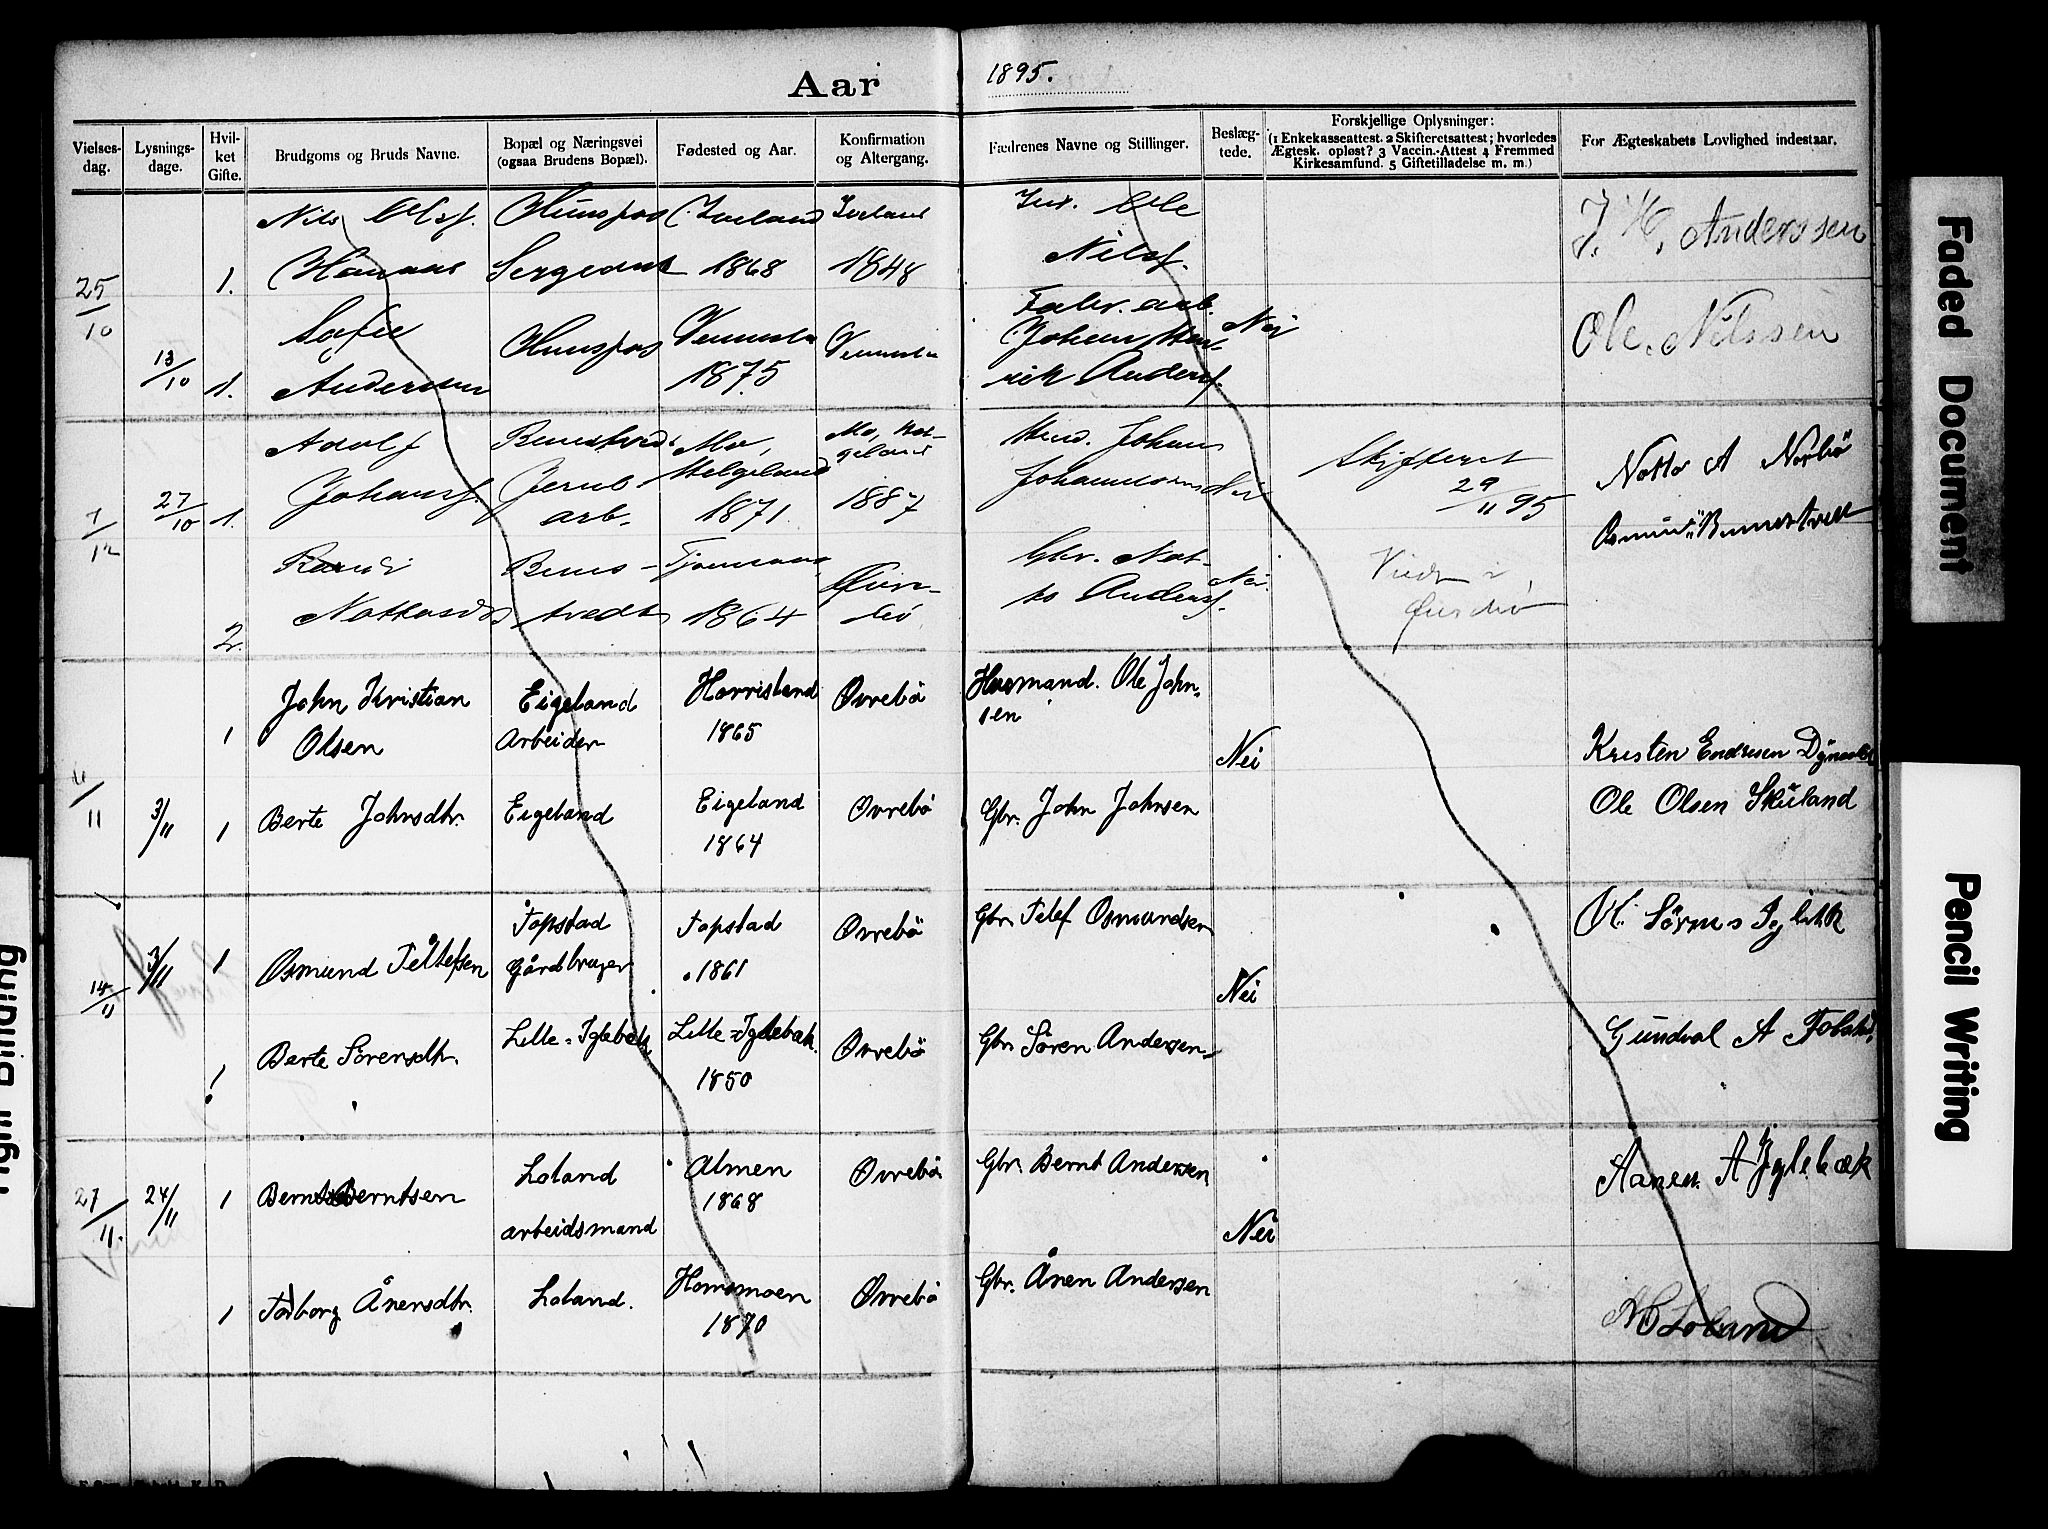 Aar 1895.
Vielses-
dag.
Lysnings-
dage.
Hvil-
ket
Gifte.
Brudgoms og Bruds Navne.
Bopæl og Næringsvei
(ogsaa Brudens Bopæl).
Fødested og Aar.
Konfirmation
og Altergang.
Fædrenes Navne og Stillinger.
Beslæg-
tede.
Forskjellige Oplysninger:
(1 Enkekasseattest. 2 Skifteretsattest; hvorledes
Ægtesk. opløst? 3 Vaccin.-Attest 4 Fremmed
Kirkesamfund. 5 Giftetilladelse m. m.)
For Ægteskabets Lovlighed indestaar.
25/10
1.
Nils Olsf.
Hunsfos
Sergeant
Iveland
1868
Iveland
1848
Ole
Nilsf.
J. H. Anderssen
13/10
1.
Sofie
Anderssen
Hunsfos
Vennesla
1875
Vennesla
Fabr. arb.
Johan Hen-
rik Andersf.
Nei
Ole Nilssen
1/12
27/10
1.
Adolf
Johansf.
Jernb.
arb.
Mo,
Helgeland
1871.
Mo, Hel-
geland
1887
Johan
Nei
Skifteret
29/11 95
Notto A
2.
Randi
Bunes-
tvedt
1864
Gbr. Not-
to Andersf.
Nei
Viet i
11
1
John Kristian
Olsen
Eigeland
Arbeider
Horrisland
1865
Øvrebö
Husmand. Ole John-
sen
Nei
Kristen Endresen
3/11
1
Berte Johnsdtr.
Eigeland
Eigeland
1864
Øvrebö
Gbr. John Johnsen
Ole Olsen Skuland
14/11
3/11
1
Osmund Tellefsen
Topstad
Gårdbruger
Topstad
1861
Øvrebö
Gbr. Telef Osmundsen
Nei
1
Berte Sörensdtr.
Lille-Iglebæk
Lille-Iglebæk.
1850
Øvrebö
Gbr. Sören Andersen
Gundval A
27/11.
24/11
1
Bernt Berntsen
Loland
arbeidsmand
Almen
1868
Øvrebö
Gbr. Bernt Andersen
Nei
Aanen A Iglebæk
1
Torborg Ånensdtr.
Loland.
Homsmoen
1870
Øvrebö
Gbr. Ånen Andersen
Loland
Faded Document
Pencil Writing
Tight Binding